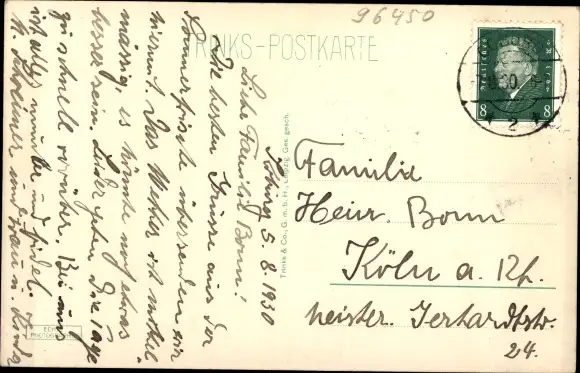 96450
TRINKS-POSTKARTE
Coburg 5. 8. 1930
Liebe Familie Bonn!
Die besten Grüsse aus der
Sommerfrische übersenden wir
hiermit. Das Wetter ist mittel-
mässig, es könnte noch etwas
besser sein. Leider gehen die Tage
zu schnell vorüber. Bei uns
ist alles munter und fidel.
und Frau u. Kinder
Trinks & Co., G. m. b. H., Leipzig Ges. gesch.
Deutsches Reich
8 8
30
2
Familie
Heinr. Bonn
Köln a. Rh.
24.